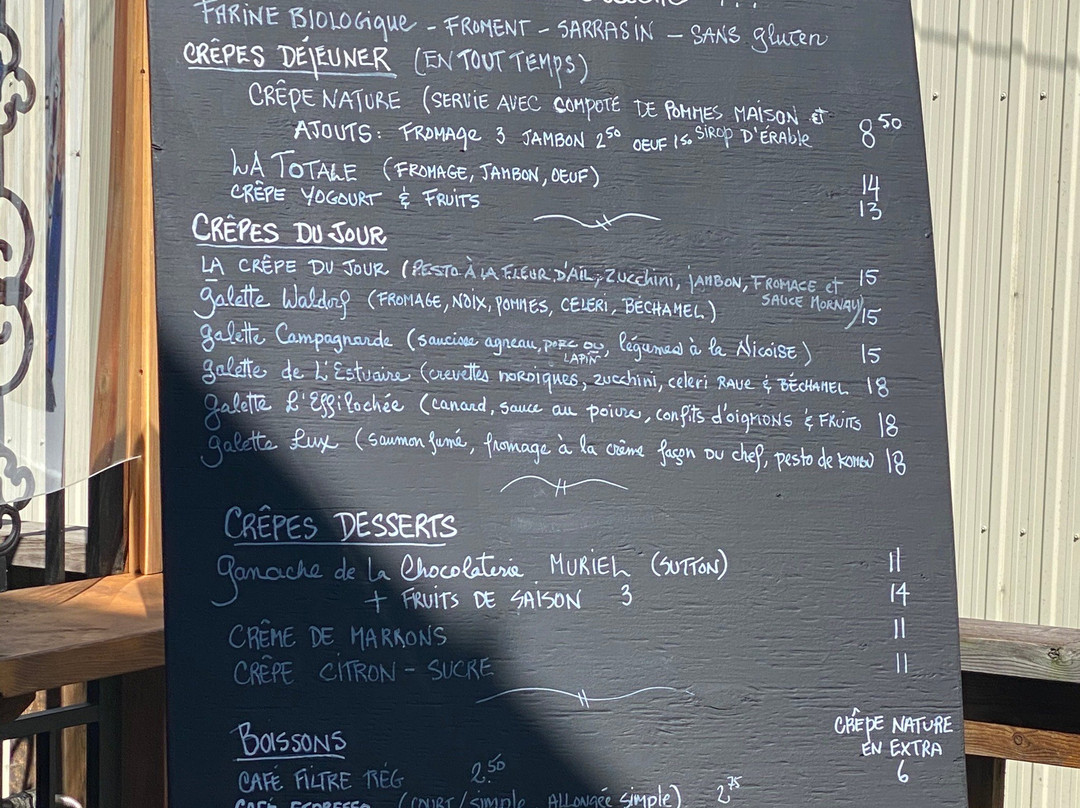 FARINE BIOLOGIQUE - FROMENT - SARRASIN - SANS gluten
CRÊPES DÉJEUNER (EN TOUT TEMPS)
CRÊPE NATURE (SERVIE AVEC COMPOTE DE POMMES MAISON et SIROP D'ÉRABLE 8 50
AJOUTS: FROMAGE 3 JAMBON 2 50 OEUF 1 50
LA TOTALE (FROMAGE, JAMBON, OEUF) 14
CRÊPE YOGOURT & FRUITS 13
CRÊPES DU JOUR
LA CRÊPE DU JOUR (PESTO À LA FLEUR D'AIL, Zucchini, JAMBON, FROMAGE et SAUCE MORNAY) 15
galette Waldorf (FROMAGE, NOIX, POMMES, CELERI, BÉCHAMEL) 15
galette Campagnarde (saucisse agneau, PORC OU LAPIN, légumes à la Nicoise) 15
galette de L'Estuaire (crevettes nordiques, zucchini, celeri RAVE & BÉCHAMEL 18
galette L'Effilochée (canard, sauce au poivre, confits d'oignons & FRUITS 18
galette Lux (saumon fumé, fromage à la crème façon DU chef, pesto de KOMBU 18
CRÊPES DESSERTS
ganache de La Chocolaterie MURIEL (SUTTON) 11
+ FRUITS DE SAISON 3 14
CRÊME DE MARRONS 11
CRÊPE CITRON - SUCRE 11
BOISSONS
CRÊPE NATURE
EN EXTRA
6
CAFÉ FILTRE RÉG 2.50
CAFÉ ESPRESSO (COURT / simple ALLONGÉE simple) 2 75